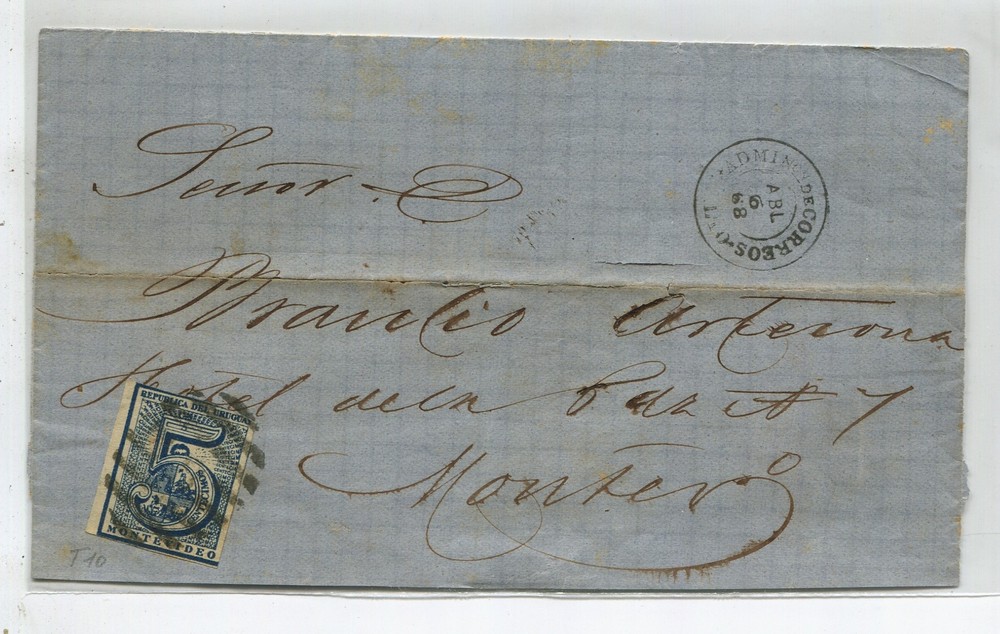 Señor D
ADMINON DE CORREOS
ABL
6
68
Braulio Artecona
Hotel de la Paz Nº 7
Montevº
REPUBLICA DEL URUGUAY
5
CENTECIMOS
MONTEVIDEO
T 10